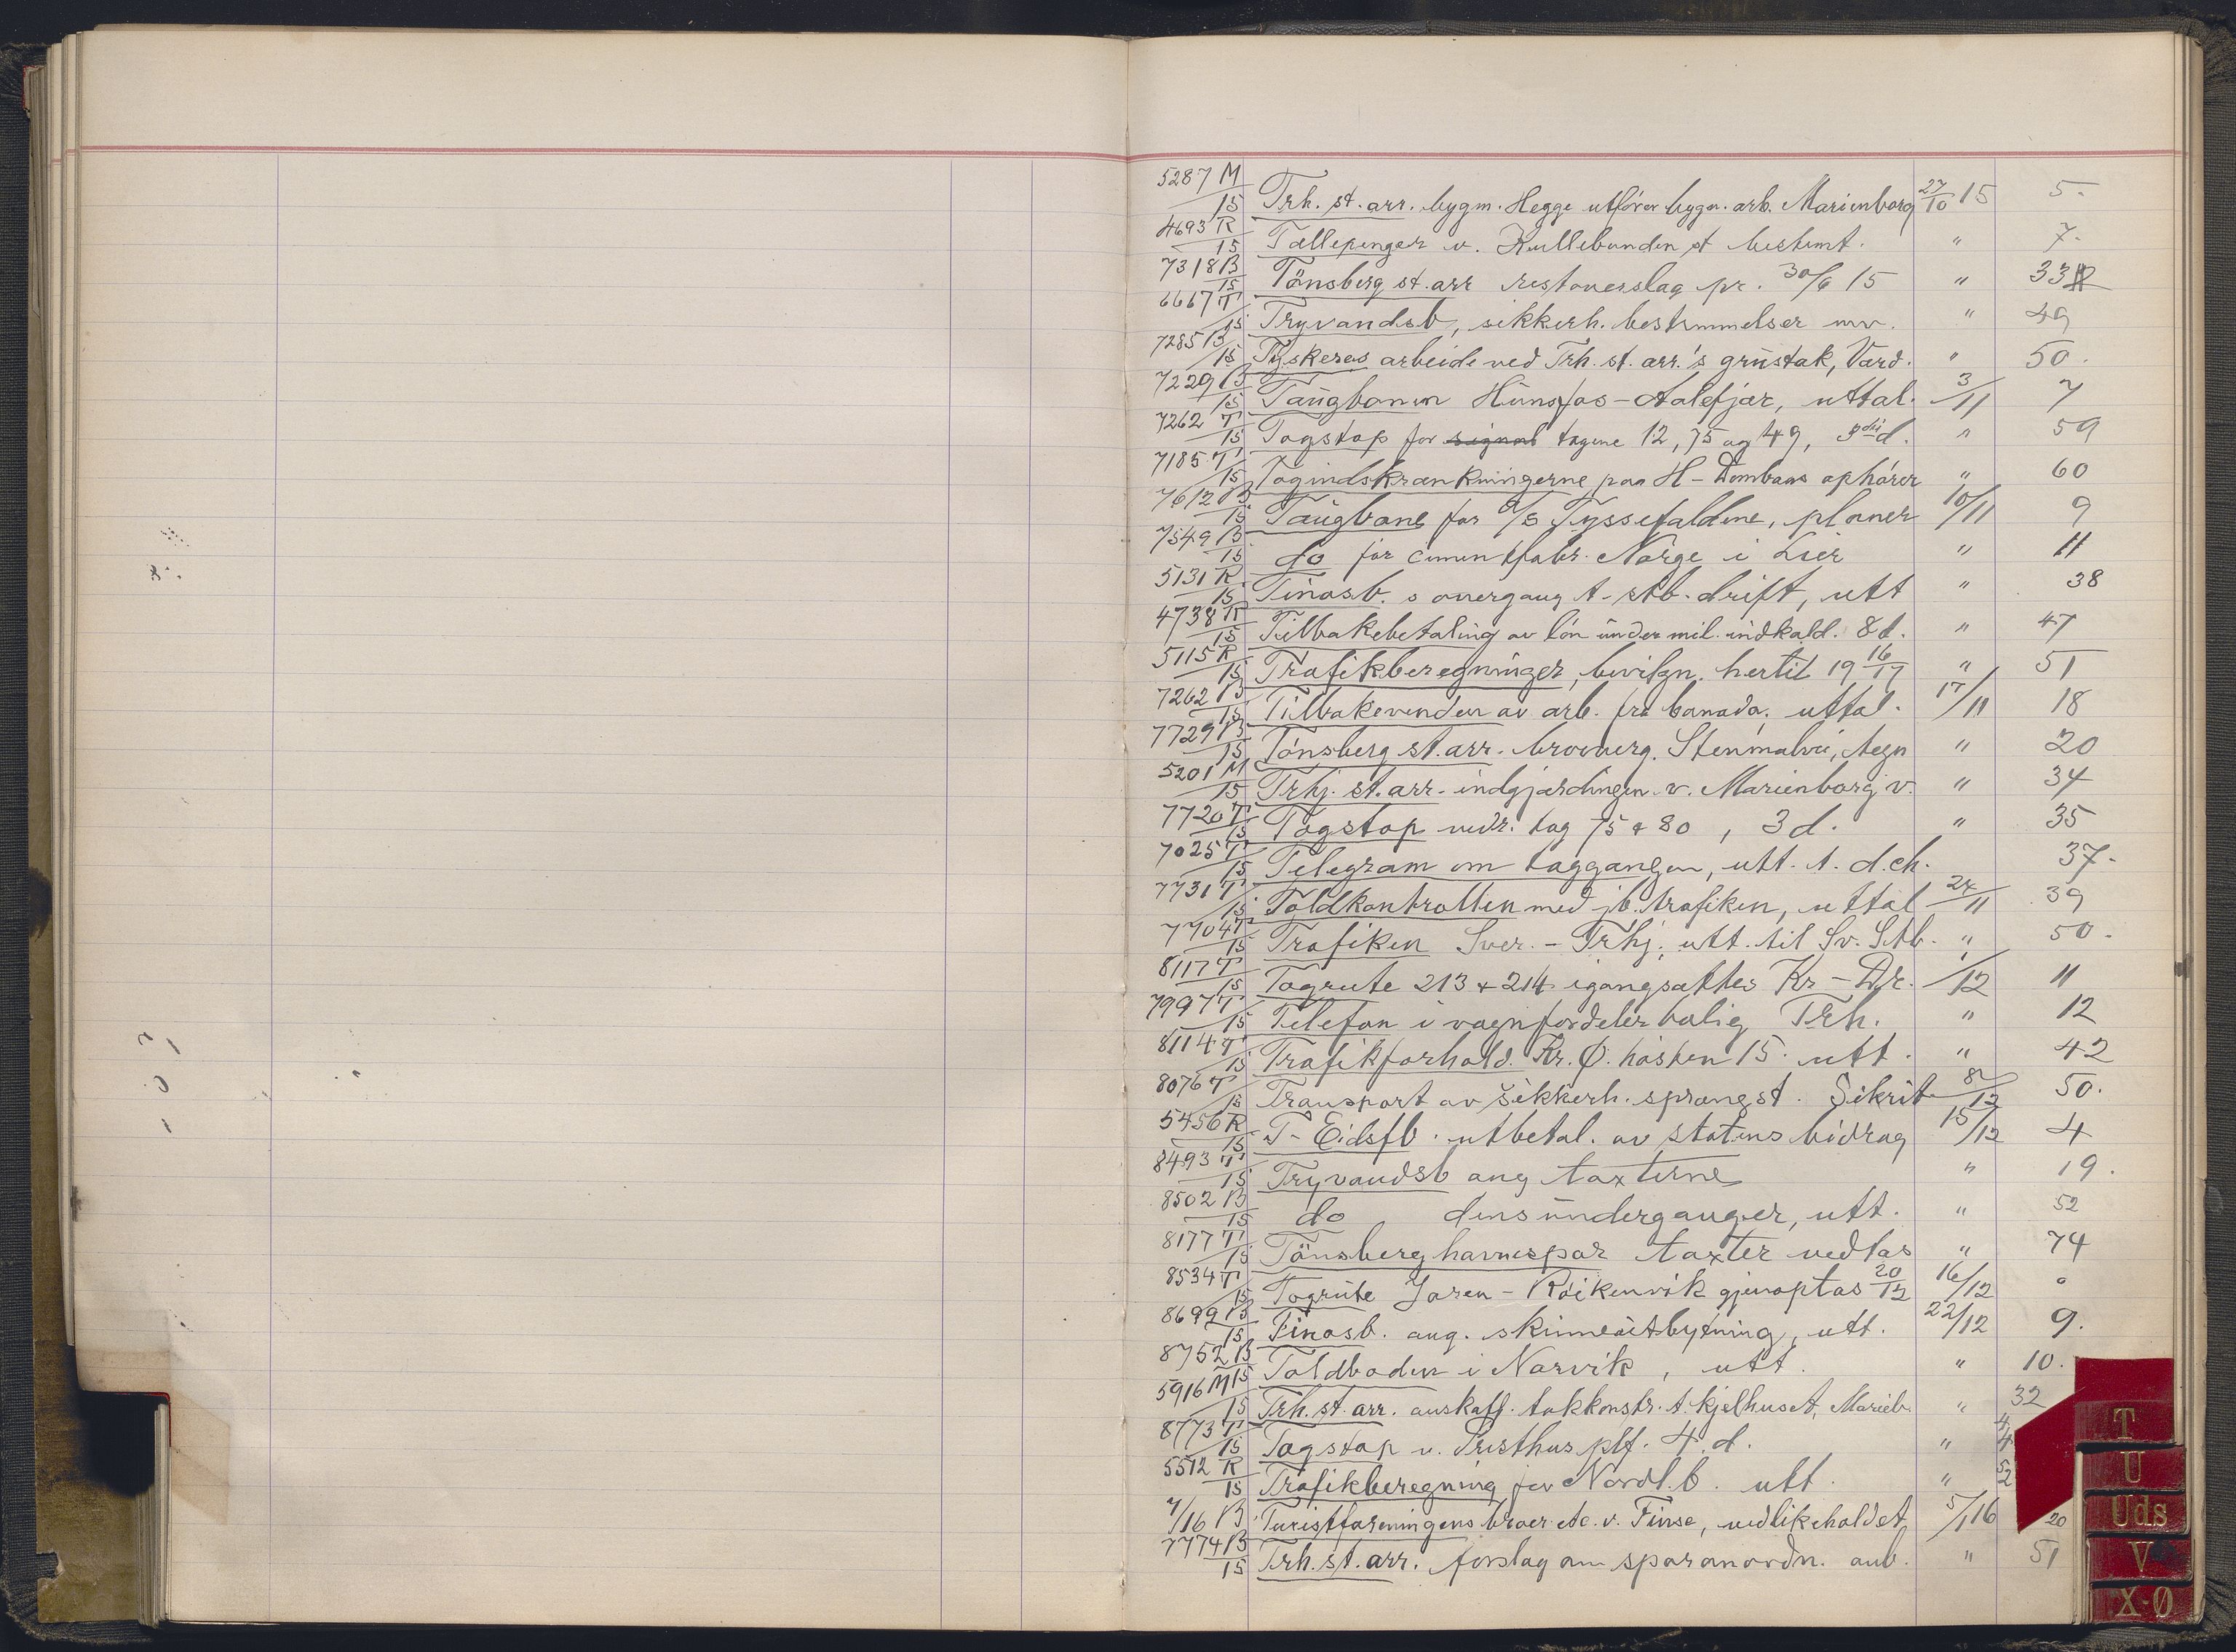 5287 M/15 Trh. st. arr. bygm. Hegge utfører bygn. arb. Marienborg 27/10 15 5.
4693 R/15 Tællepenger v. Kullebunden st bestemt. " 7.
7318 B/15 Tönsberg st. arr restoverslag pr. 30/6 15 " 33
6667 T/15 Tryvandsb, sikkerh. bestemmelser mv. " 49
7285 B/15 Tyskeres arbeide ved Trh. st. arr.'s grustak, Værd. " 50.
7229 B/15 Taugbanen Hunsfos - Aalefjær, uttal. 3/11 7
7262 T/15 Togstop for signal togene 12, 75 og 49, d. " 59
7185 T/15 Togindskrænkningerne paa H - Dombaas ophører " 60
7612 B/15 Taugbane for A/S Tyssefaldene, planer 10/11 9
7549 B/15 do for cementfabr. Norge i Lier " 11
5131 R/15 Tinosb. s overgang t. stb. drift, utt " 38
4738 R/15 Tilbakebetaling av løn under mil. indkald. 8 d. " 47
5115 R/15 Trafikberegninger, bevilgn. hertil 19 16/17 " 51
7262 B/15 Tilbakevenden av arb. fra Canada. uttal. 17/11 18
7729 B/15 Tönsberg st. arr. brooverg. Stenmalvei, tegn " 20
5201 M/15 Trhj. st. arr. indgjærdingen v. Marienborg v. " 34
7720 T/15 Togstop vedr. tog 75 & 80, 3 d. " 35
7025 T/15 Telegram om toggangen, utt. t. d.ch. 37.
7731 T/15 Toldkontrollen med jb. trafiken, uttal 24/11 39
7704 T/15 Trafiken Sver. - Trhj. utt. til Sv. Stb. " 50.
8117 T/15 Togrute 213 & 214 igangsættes Kr - Dr. 1/12 11
7997 T/15 Telefon i vognfordeler bolig Trh. " 12
8114 T/15 Trafikforhold. Kr. Ø. høsten 15. utt. " 42
8076 T/15 Transport av sikkerh. sprængst. Sikrit 8/12 50.
5456 R/15 T - Eidsfb. utbetal. av statens bidrag 15/12 4
8493 T/15 Tryvandsb ang taxterne " 19.
8502 B/15 do dens underganger, utt. " 52
8177 T/15 Tönsberg havnespor taxter vedtas " 74
8534 T/15 Togrute Jaren - Röikenvik gjenoptas 20/12 16/12 °
8699 B/15 Tinosb. ang. skinneutbytning, utt. 22/12 9.
8752 B/15 Toldboden i Narvik, utt. " 10.
5916 M/15 Trh. st. arr. anskaff. takkonstr. t. kjelhuset, Marieb. " 32
8773 T/15 Togstop v. Presthus plf. 4. d. " 44
5512 R/15 Trafikberegning for Nordl. b. utt. " 52
7/16 B Turistforeningens broer etc. v. Finse, vedlikeholdet 5/1 16 20
7774 B/15 Trh. st. arr. forslag om sporanordn. anb. " 51
T
U
Uds
V
X-Ø